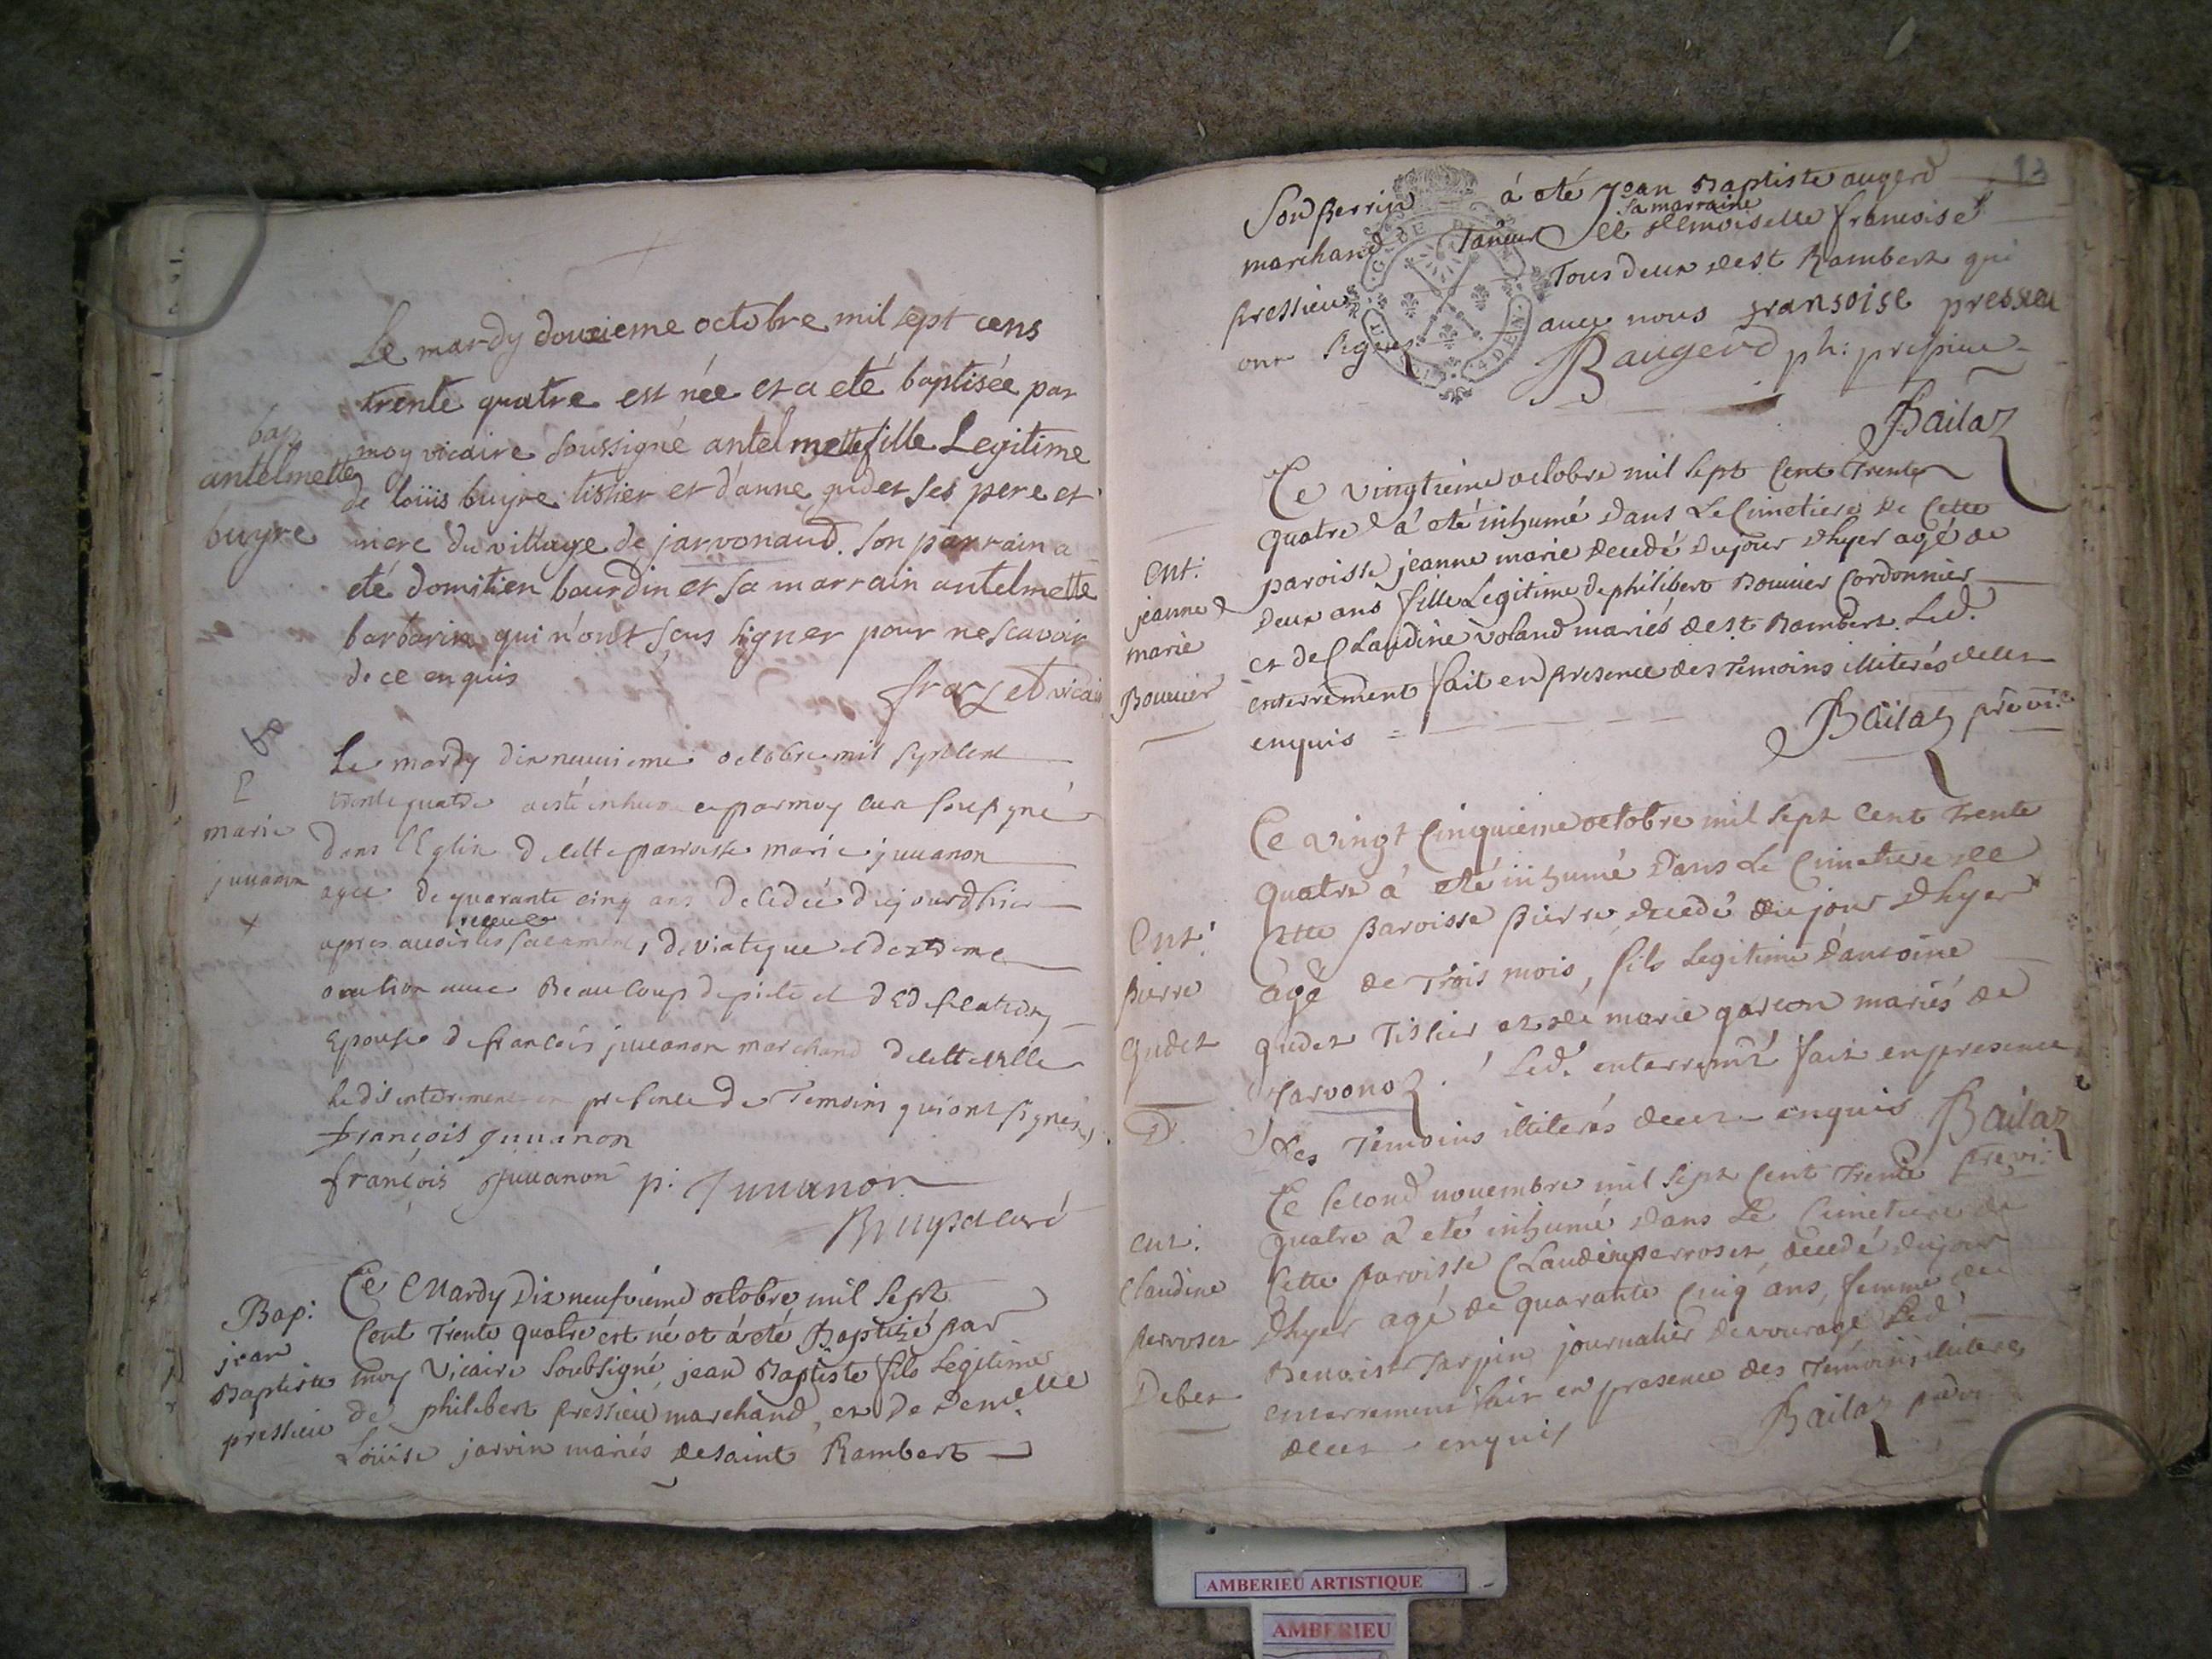 Le mardy douxieme octobre mil sept cens
trente quatre est née et a eté baptisée par
moy vicaire soussigné antelmette fille Legitime
de loüis buyre tistier et d'anne gudet ses pere et
mere du village de jarvonaud. son parrain a
eté domitien bourdin et sa marrain antelmette
barbarin qui n'ont sçus signer pour ne scavoir
de ce enquis
frarZet vicai
bap
antelmette
buyre
Le mardy dixneuuieme octobre mil sept cent
trente quatre a esté inhumee par moy curé sousigné
dans l'Eglise de cette parroisse marie juuanon
agee de quarante cinq ans decedée du jour d'hier
receu
apres auoir les sacaments de viatique et dextreme
onction auec Beaucoup de pieté et d'Edification
Epouse de françois juuanon marchand de cette ville
ledit enterement en presence de Temoins qui ont signés
françois juuanon
françois Juuanon p. Juuanon
curé
E
marie
juuanon
Ce Mardy Dix neufvieme octobre mil sept
Cent Trente quatre est né et á eté Baptizé par
moy Vicaire Soubsigné, jean Baptiste fils Legitime
de philibert pressieu marchand, et De Demelle
Loüise jarvin mariés de saint Rambert
Bap:
jean
Baptiste
pressieu
13
Son perrin á eté Jean Baptiste augerd
sa marraine
marchand Taneur et demoiselle francoise
pressieu Tous deux de st Rambert qui
ont signés auec nous fransoise pressieu
B augerd ph: pressieu
Bailaz
Ce vingtieme octobre mil sept Cent Trente
quatre á eté inhumé dans Le Cimetiere de Cette
paroisse jeanne marie decedé du jour d'hyer agé de
Deux ans fille Legitime de philibert Bouuier Cordonnier
et de Claudine voland mariés de st. Rambert. Led.
enterrement fait en presence des Temoins illiterés de ce
enquis
Bailaz pre vi:
ent:
jeanne
marie
Bouuier
Ce vingt Cinquieme octobre mil sept Cent Trente
quatre á eté inhumé Dans Le Cimetiere de
Cette paroisse pierre decedé du jour d'hyer
agé de Trois mois, fils Legitime d'antoine
gudet Tissier et de marie garcon mariés de
Jarvonoz. Led. enterremt fait en presence
des Temoins illiterés de ce enquis Bailaz
pre vi:
Ent:
pierre
gudet
Ce Second nouembre mil sept Cent Trente
quatre á eté inhumé Dans Le Cimetiere de
Cette paroisse Claudine perroset, decedé du jour
d'hyer agé de quarante Cinq ans, femme de
Benoist Tarpin journalier de vourage Led.
enterrement fait en presence des Temoins illiteres
de ce enquis
Bailaz
ent:
Claudine
perroset
Debet
AMBERIEU ARTISTIQUE
AMBERIEU